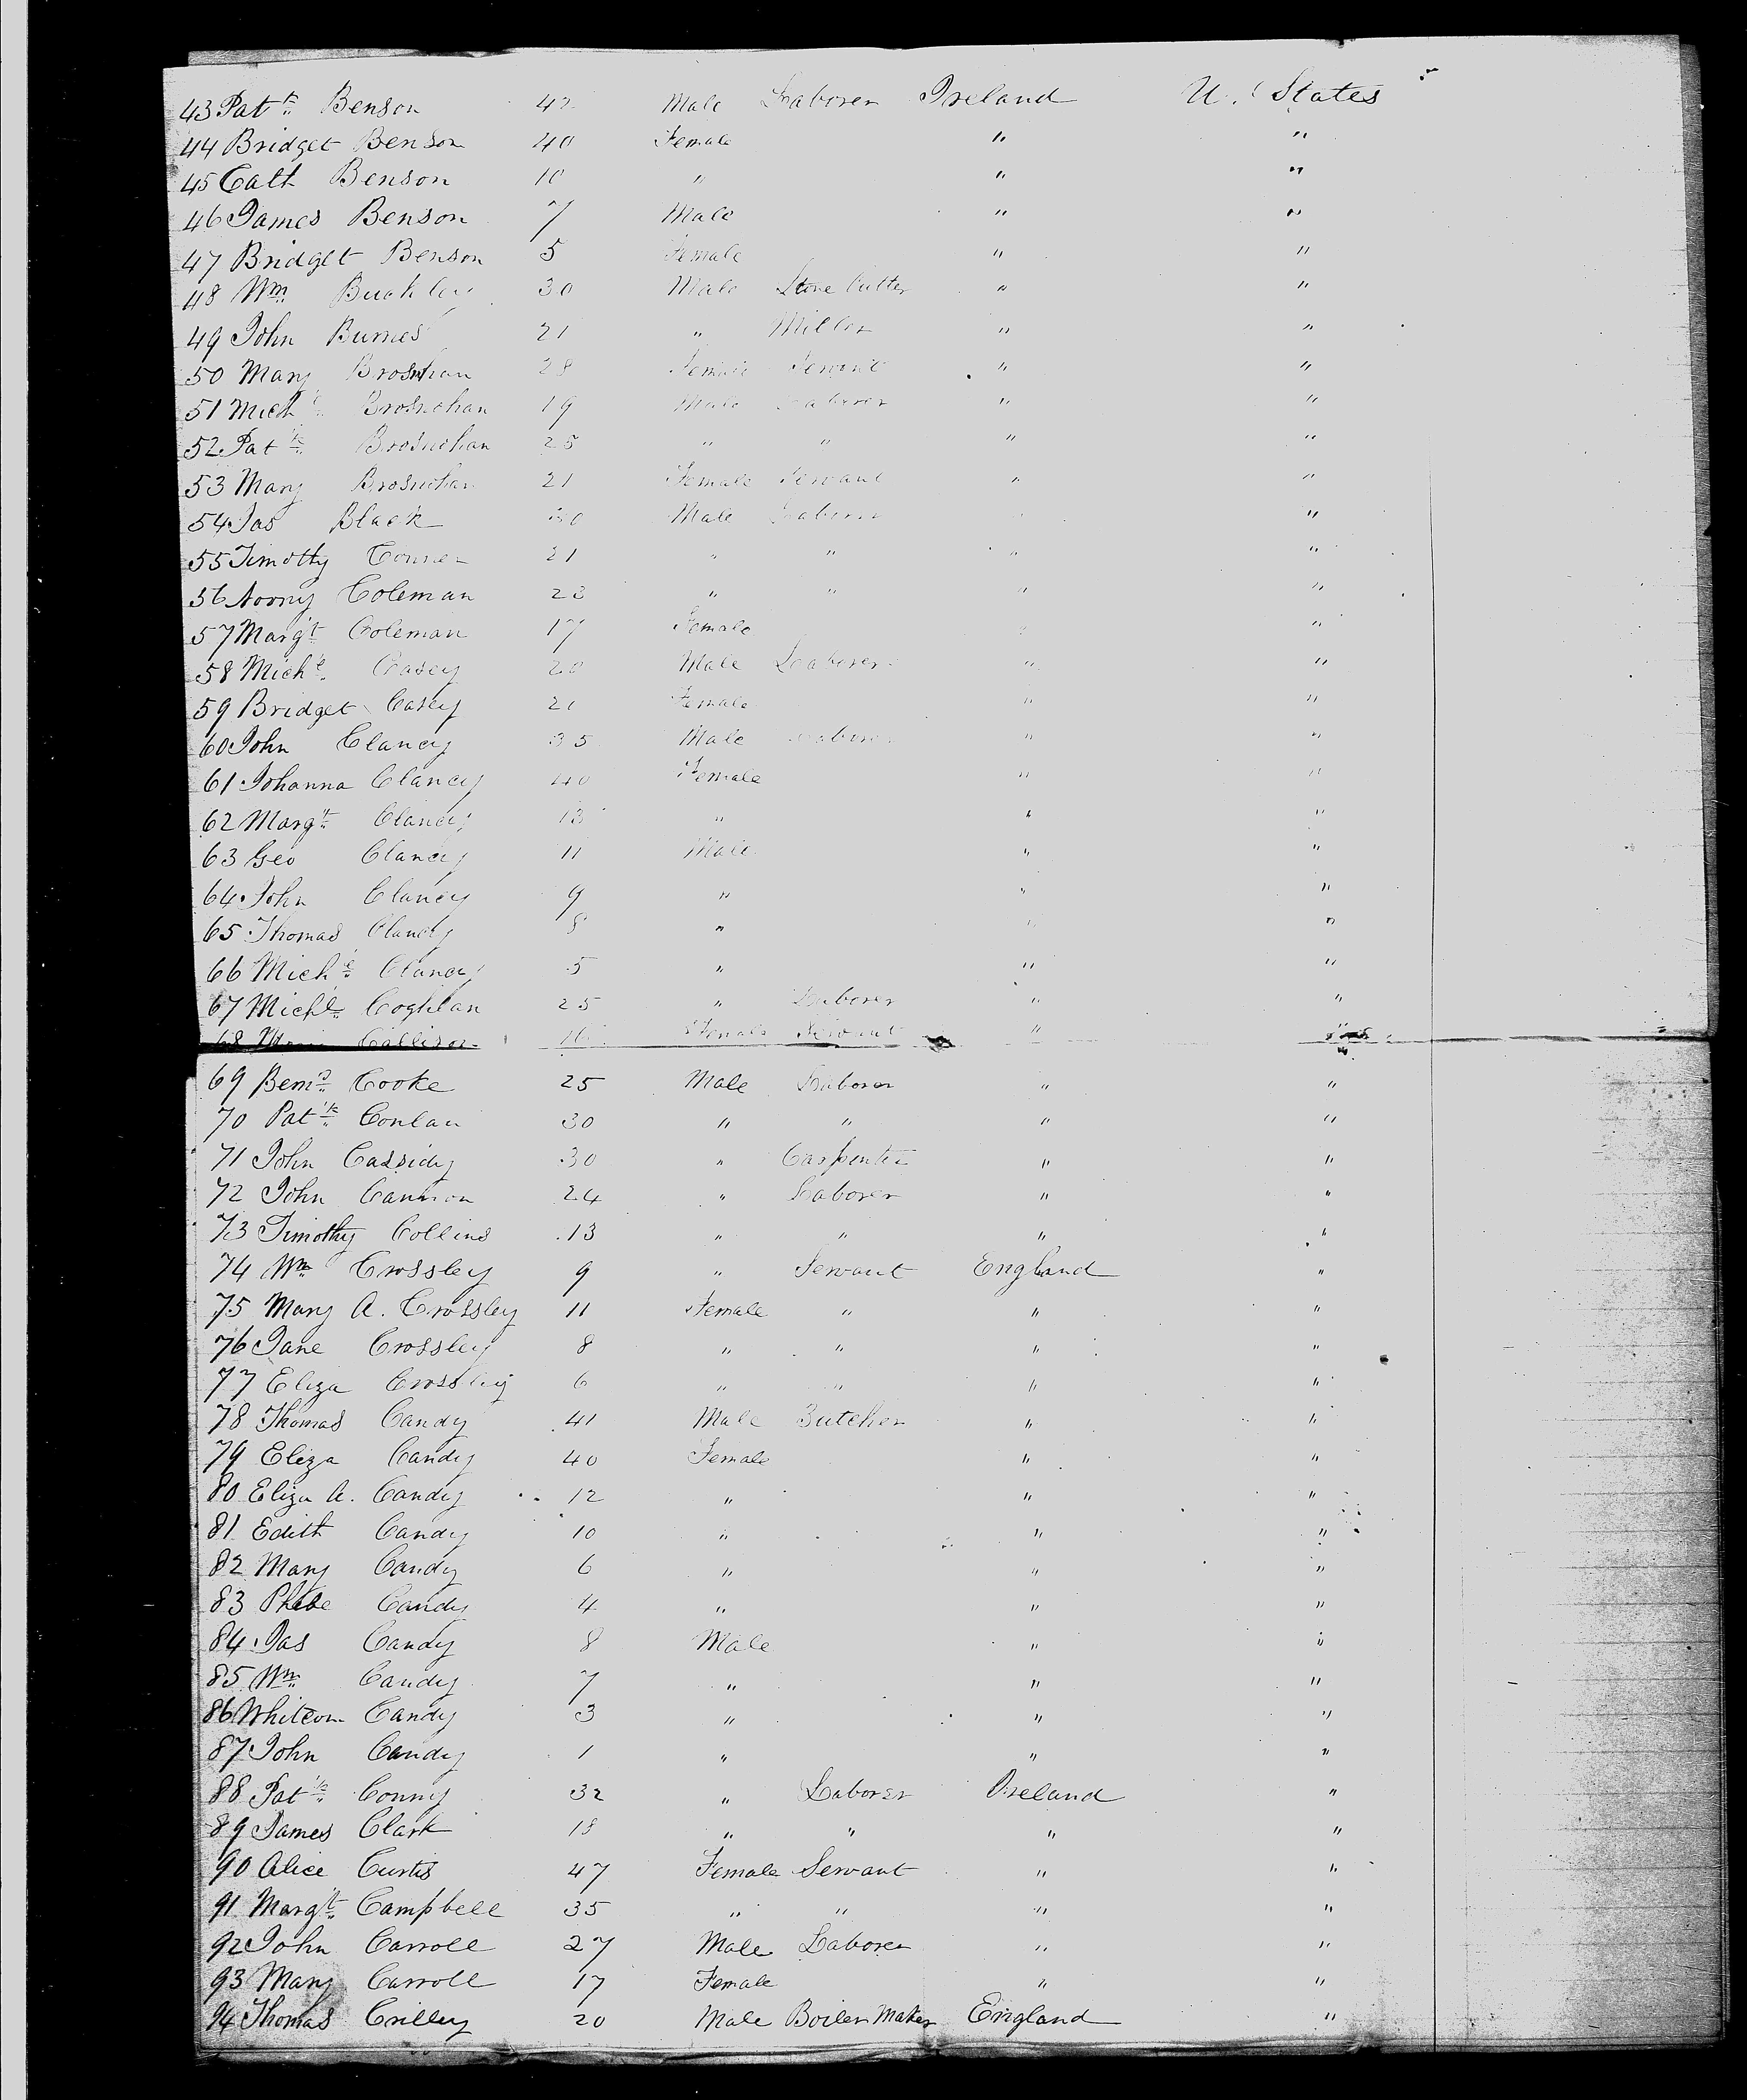 43 Pat.k Benson 42 Male Laborer Ireland U. States
44 Bridget Benson 40 Female " "
45 Cath Benson 10 " " "
46 James Benson 7 Male " "
47 Bridget Benson 5 Female " "
48 Wm Buckley 30 Male Stone Cutter " "
49 John Burnes 21 " Miller " "
50 Mary Brosnihan 28 Female Servant " "
51 Mich.l Brosnohan 19 Male Laborer " "
52 Pat.k Brosnohan 25 " " " "
53 Mary Brosnohan 21 Female Servant " "
54 Jas Black 30 Male Laborer " "
55 Timothy Conner 21 " " " "
56 Norry Coleman 23 " " " "
57 Marg't Coleman 17 Female " "
58 Mich.l Casey 20 Male Laborer " "
59 Bridget Casey 21 Female " "
60 John Clancy 35 Male Laborer " "
61 Johanna Clancy 40 Female " "
62 Marg't Clancy 13 " " "
63 Geo Clancy 11 Male " "
64 John Clancy 9 " " "
65 Thomas Clancy 8 " " "
66 Mich.l Clancy 5 " " "
67 Mich.l Coghlan 25 " Laborer " "
68 16 Female Servant " "
69 Bern.d Cooke 25 Male Laborer " "
70 Pat.k Conlan 30 " " " "
71 John Cassidy 30 " Carpenter " "
72 John Cannon 24 " Laborer " "
73 Timothy Collins 13 " " " "
74 Wm Crossley 9 " Servant England "
75 Mary A. Crossley 11 Female " " "
76 Jane Crossley 8 " " " "
77 Eliza Crossley 6 " " " "
78 Thomas Candy 41 Male Butcher " "
79 Eliza Candy 40 Female " "
80 Eliza A. Candy 12 " " "
81 Edith Candy 10 " " "
82 Mary Candy 6 " " "
83 Phebe Candy 4 " " "
84 Jas Candy 8 Male " "
85 Wm Candy 7 " " "
86 Whitcom Candy 3 " " "
87 John Candy 1 " " "
88 Pat.k Conny 32 " Laborer Ireland "
89 James Clark 18 " " " "
90 Alice Curtis 47 Female Servant " "
91 Marg't Campbell 35 " " " "
92 John Carroll 27 Male Laborer " "
93 Mary Carroll 17 Female " "
94 Thomas Crilley 20 Male Boiler Maker England "